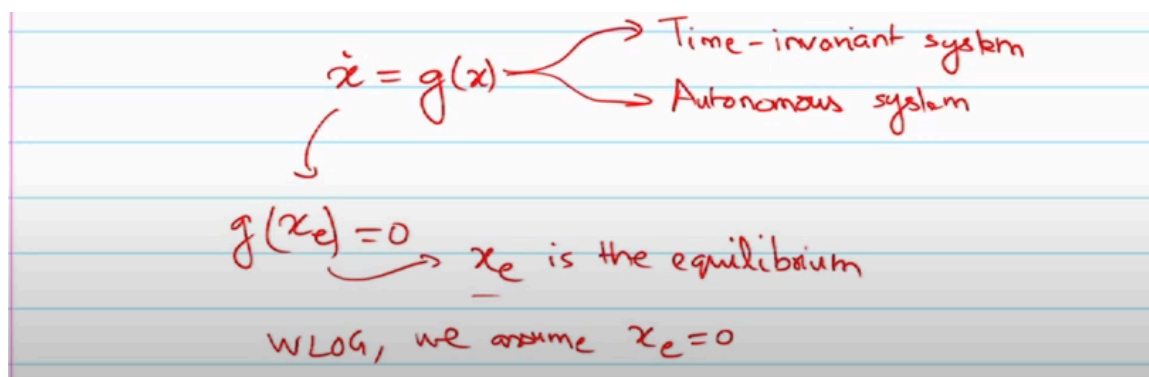 Time-invariant system
ẋ = g(x)
Autonomous system
g(xₑ) = 0
xₑ is the equilibrium
WLOG, we assume xₑ = 0